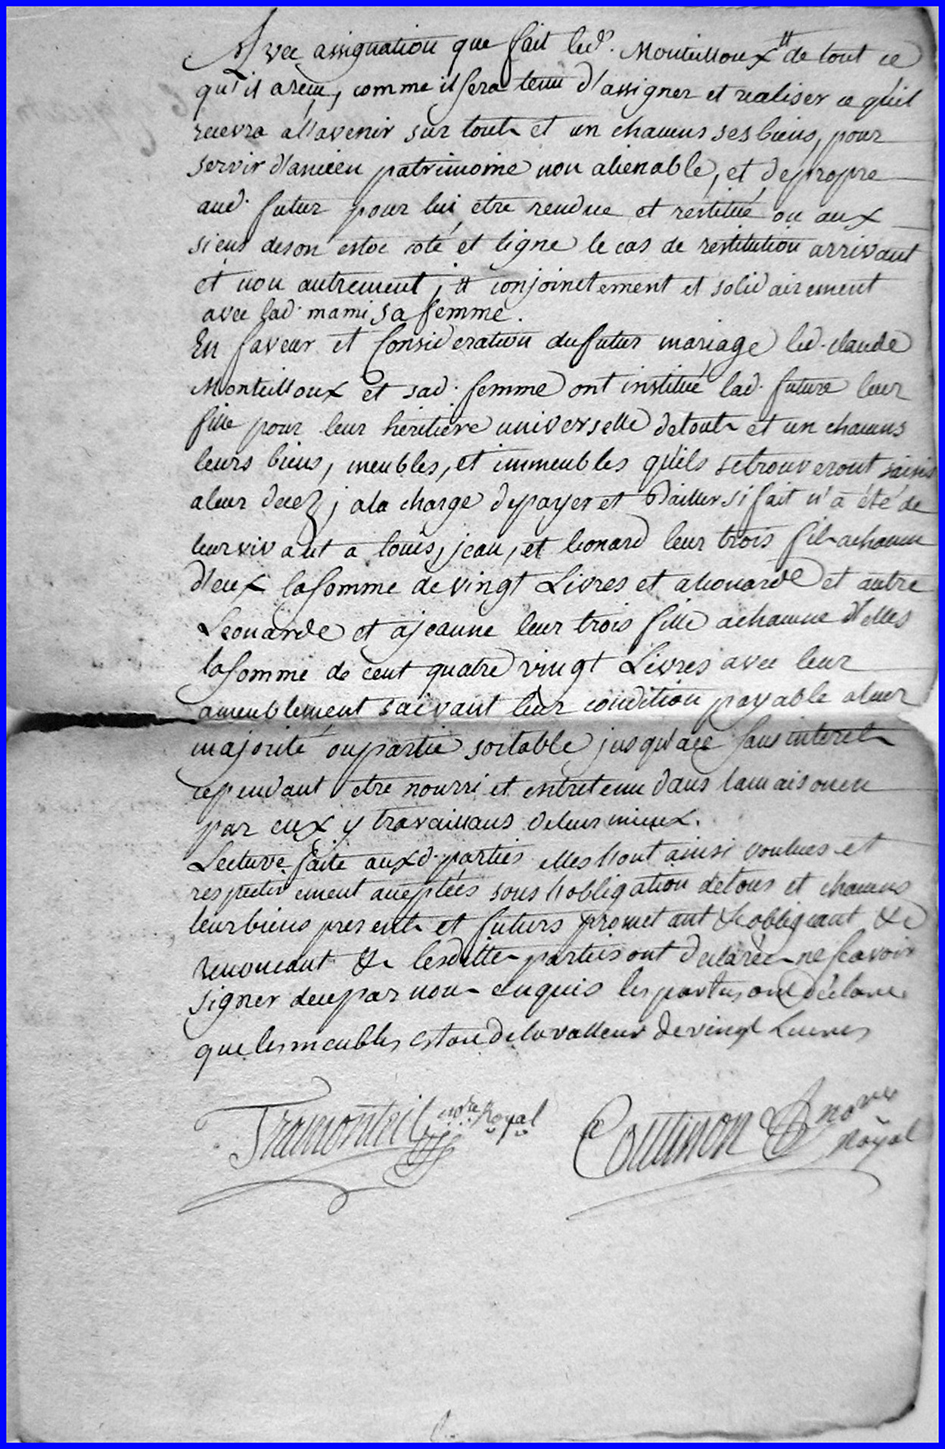 Avec assignation que fait led. Monteilloux # de tout ce
qu'il a reçu, comme il sera tenu d'assigner et realiser ce qu'il
recevra a l'avenir sur touts et un chacuns ses biens, pour
servir d'ancien patrimoine non alienable, et de propre
aud. futur pour lui etre rendue et restitué ou aux
siens de son estoc coté et ligne le cas de restitution arrivant
et non autrement, # conjoinctement et solidairement
avec lad. mami sa femme.
En faveur et consideration du futur mariage led. claude
Monteilloux et sad. femme ont institué lad. future leur
fille pour leur héritière universelle de touts et un chacuns
leurs biens, meubles, et immeubles qu'ils se trouveront saisis
a leur decez, a la charge de payer et bailler si fait n'a été de
leur vivant a louis, jean, et leonard leur trois fils a chacun
d'eux la somme de vingt Livres et a leonarde et autre
Leonarde et a jeanne leur trois fille a chacune d'elles
la somme de cent quatre vingt Livres avec leur
ameublement saivant leur condition payable a leur
majorité ou partie sortable jusqu'a ce sans interets
cependant etre nourri et entretenu dans la maison en
par eux y travaillans de leur mieux.
Lecture faite auxd. parties elles l'ont ainsi voulues et
respectivement acceptées sous l'obligation de tous et chacuns
leur biens presents et futurs prometant &c obligeant &c
renonceant &c lesditte parties ont declarée ne scavoir
signer de ce par nous enquis les parties ont déclare
que les meubles estoi de la valleur de vingt Livres
Tramonteil nore. Royal
Coutinon nore
Royal